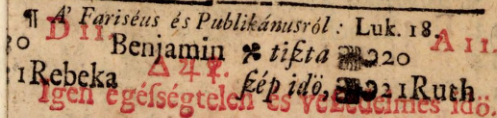 ¶ A' Fariséus és Publikánusról: Luk. 18.
D 11 A 11.
30 Benjamin tiſzta 20
△ ♃ ☿.
1 Rebeka ſzép idö, 21 Ruth
Igen egéſségtelen és veſzedelmes idö.